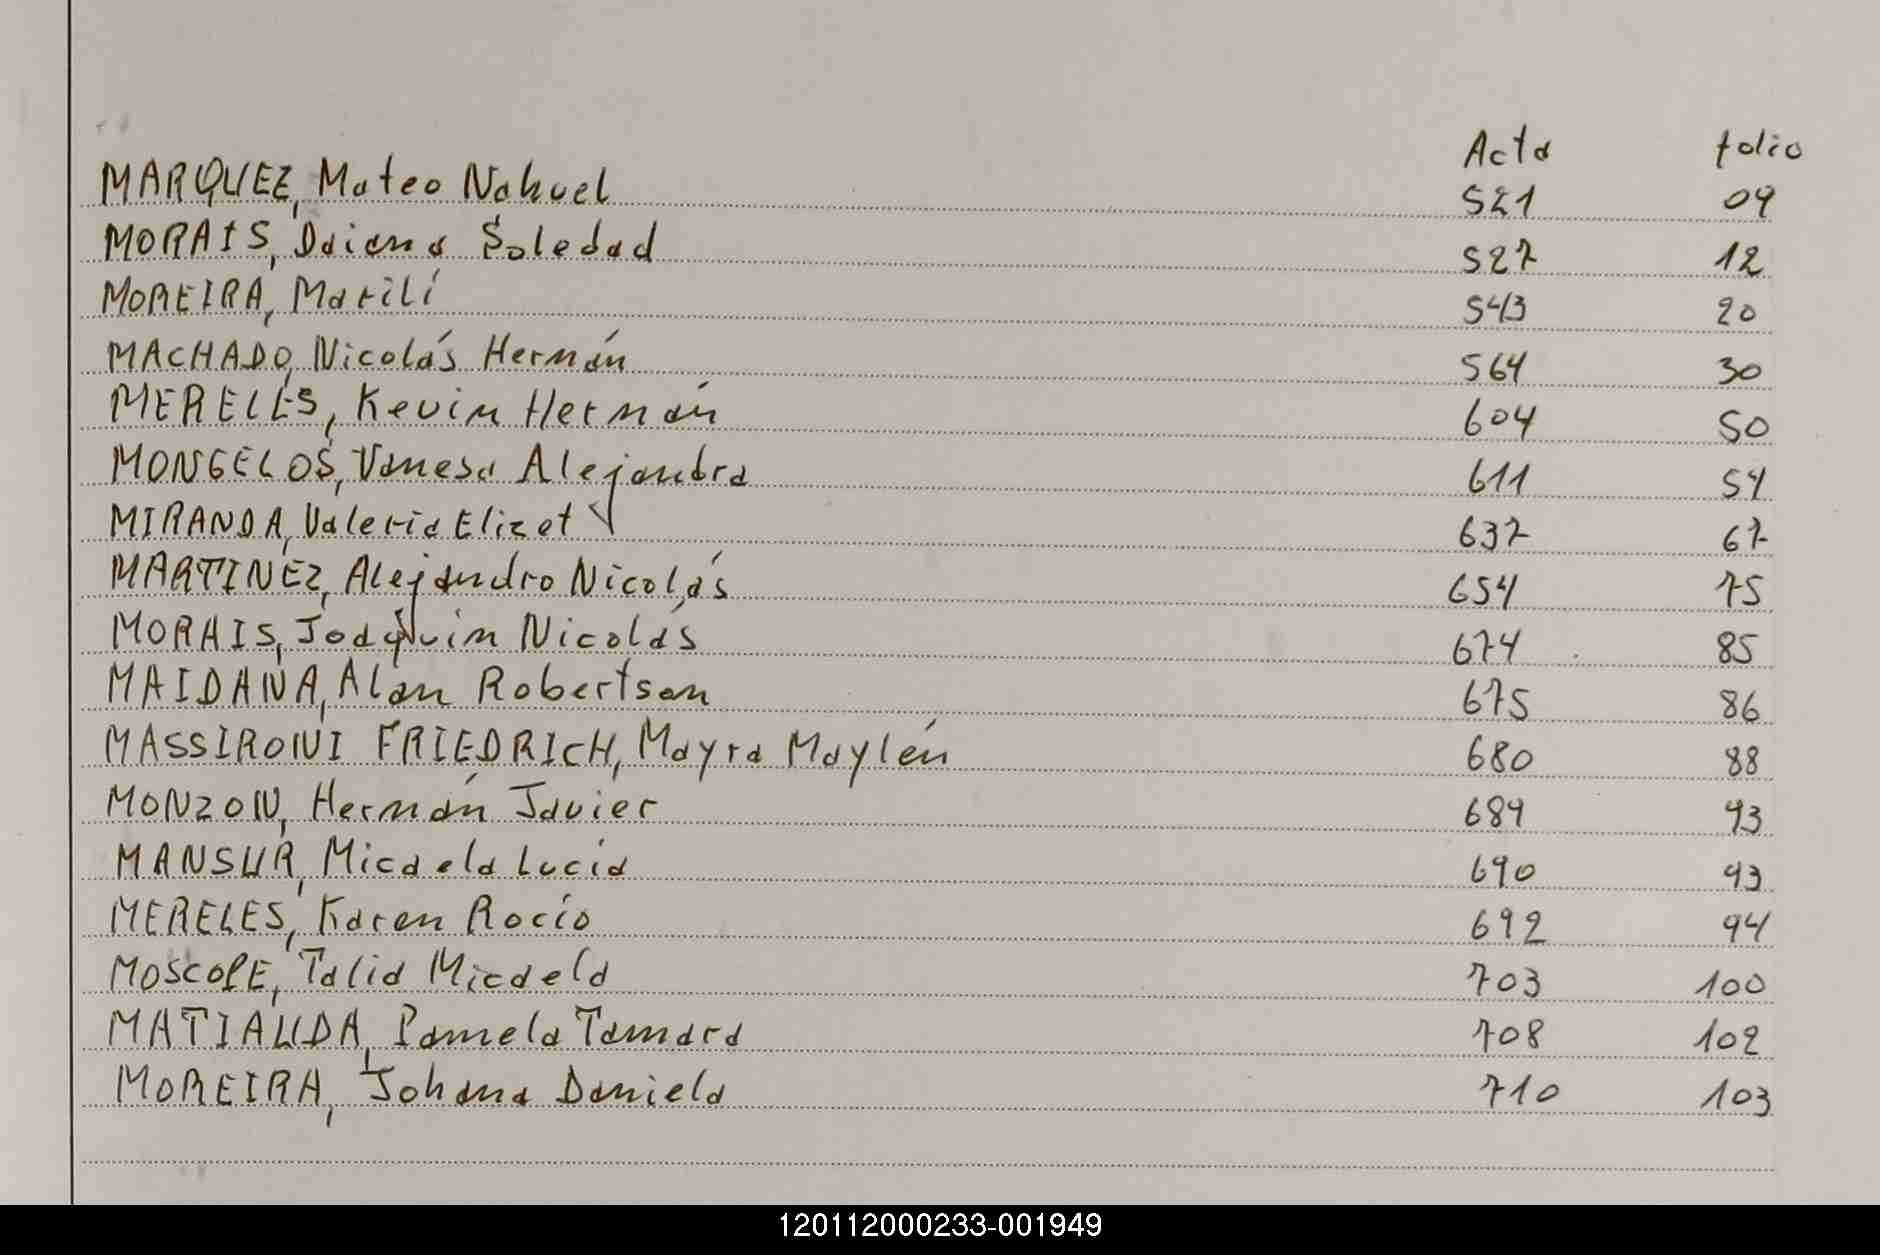 Acta folio
MARQUEZ, Mateo Nahuel 521 09
MORAIS, Daiana Soledad 527 12
MOREIRA, Marilí 543 20
MACHADO, Nicolás Hernán 564 30
MERELES, Kevin Hernán 604 50
MONGELOS, Vanesa Alejandra 611 54
MIRANDA, Valeria Elizet 637 67
MARTINEZ, Alejandro Nicolás 654 75
MORAIS, Joaquín Nicolás 674 85
MAIDANA, Alan Robertson 675 86
MASSIRONI FRIEDRICH, Mayra Maylén 680 88
MONZON, Hernán Javier 689 93
MANSUR, Micaela Lucía 690 93
MERELES, Karen Rocío 692 94
MOSCOPE, Talia Micaela 703 100
MATIAUDA, Pamela Tamara 708 102
MOREIRA, Johana Daniela 710 103
120112000233-001949